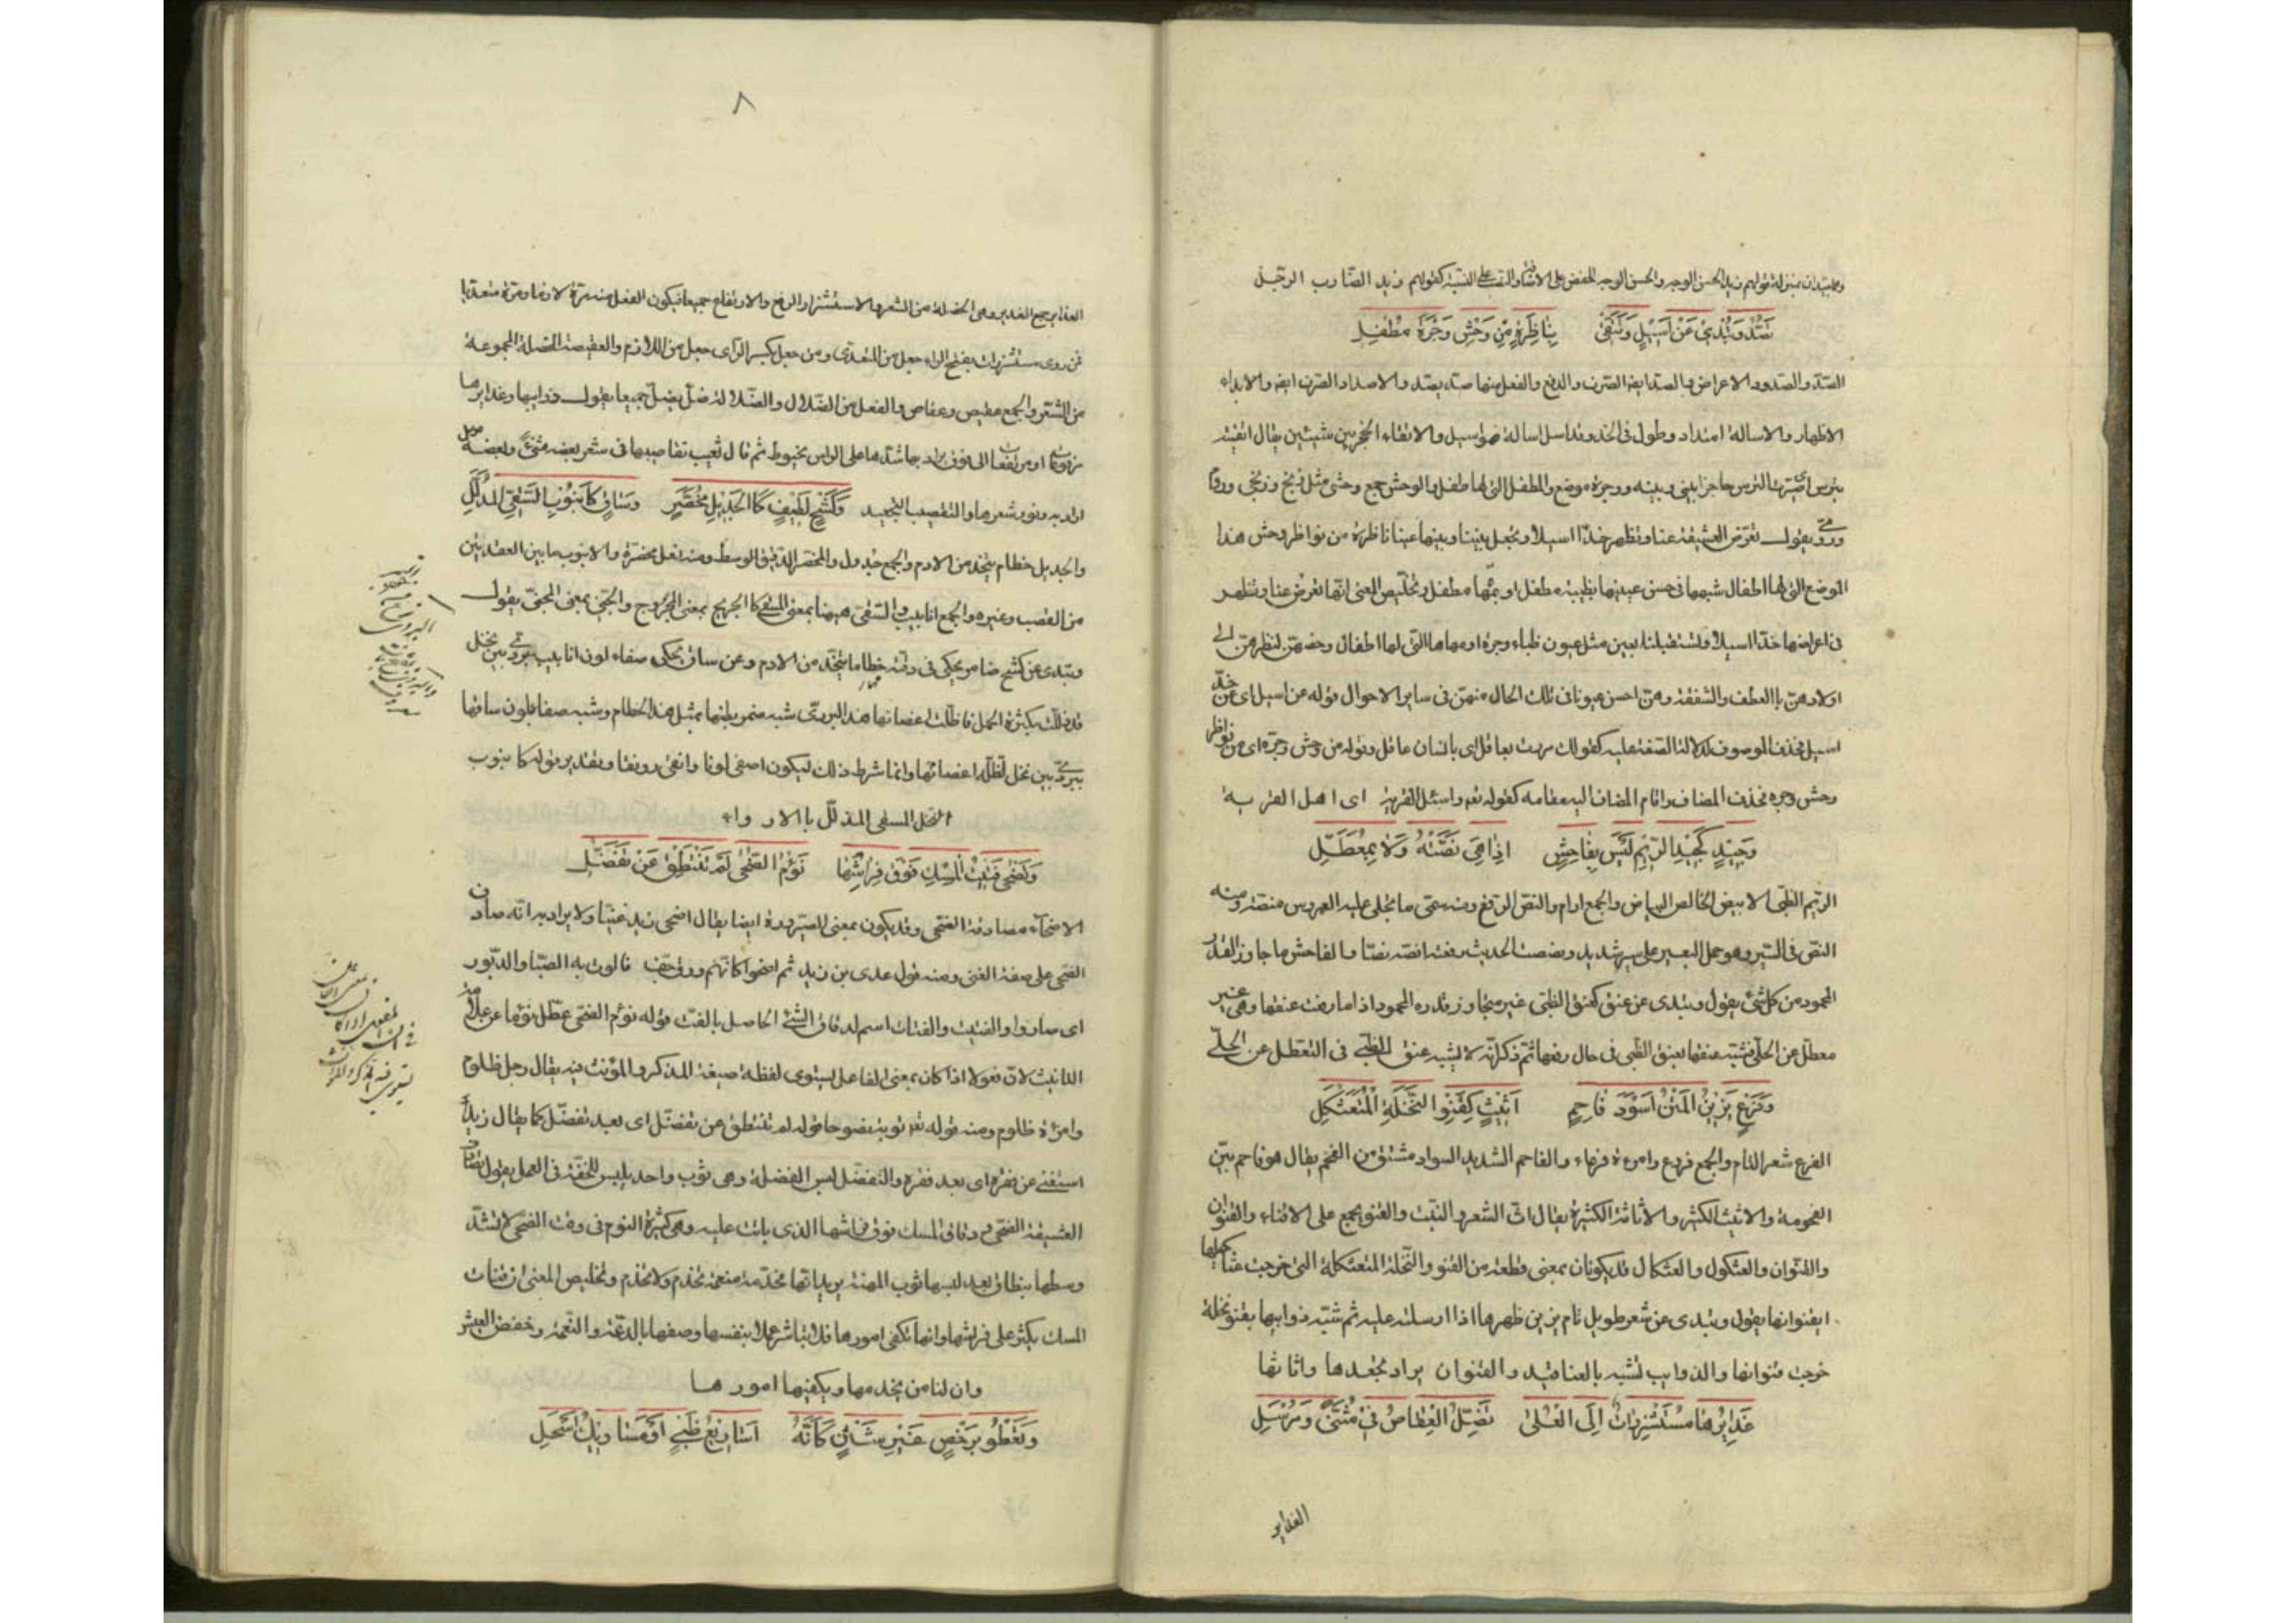 زيد الحسن الوجه والحسن الوجه الخفض على الاضافة والنصب على التشبيه كقولهم زيد الضارب الرجل
تَصُدُّ وَتُبْدِي عَنْ اَسِيلٍ وَتَتَّقِي بِنَاظِرَةٍ مِنْ وَحْشِ وَجْرَةَ مُطْفِلِ
الصدّ والصدود الاعراض والصد ايضا الصرف والدفع والفعل منهما صدّ يصدّ والاصداد الصرف ايضا والابداء
الاظهار والاسالة امتداد وطول في الخد وقد اسل اسالة فهو اسيل والاتقاء الحجز بين شيئين يقال اتقيته
بترس اى جعلت الترس حاجزا بينى وبينه ووجرة موضع والمطفل التى لها طفل والوحش جمع وحشى مثل زنج وزنجى وروم
ورومى يقول تعرض العشيقة عنا وتظهر خدّا اسيلا وتجعل بيننا وبينها عينا ناظرة من نواظر وحش هذا
الموضع التى لها اطفال شبهها فى حسن عينيها بظبية مطفل او بمهاة مطفل وتلخيص المعنى انها تعرض عنا وتظهر
فى اعراضها خدّا اسيلا وتستقبلنا بعين مثل عيون ظباء وجرة او مهاها التى لها اطفال وخصهن لنظرهن الى
اولادهن بالعطف والشفقة وهن احسن عيونا فى تلك الحال منهن فى ساير الاحوال قوله عن اسيل اى عن خدّ
اسيل فحذف الموصوف لدلالة الصفة عليه كقولك مررت بعاقل اى بانسان عاقل وقوله من وحش وجرة اى من نواظر
وحش وجره فحذف المضاف واقام المضاف اليه مقامه كقوله تعه واسئل القرية اى اهل القرية
وَجِيْدٍ كَجِيْدِ الرِّئْمِ لَيْسَ بِفَاحِشٍ اِذَا هِيَ نَصَّتْهُ وَلَا بِمُعَطَّلِ
الرئيم الظبى الابيض الخالص البياض والجمع ارام والنصّ الرفع ومنه سمى ما تجلى عليه العروس منصة ومنه
النصّ فى السير وهو حمل البعير على سير شديد ونصصت الحديث رفعته انصّه نصّا والفاحش ما جاوز القدر
المحمود من كل شئ يقول وتبدى عن عنق كعنق الظبى غير متجاوز قدره المحمود اذا ما رفعت عنقها وهى غير
معطل عن الحلى فشبه عنقها بعنق الظبى فى حال رفعها ثم ذكر انه لا يشبه عنق الظبى فى التعطل عن الحلى
وَفَرْعٍ يَزِيْنُ الْمَتْنَ اَسْوَدَ فَاحِمٍ اَثِيْثٍ كَقِنْوِ النَّخْلَةِ الْمُتَعَثْكِلِ
الفرع شعر التام والجمع فروع وامرءة فرعاء والفاحم الشديد السواد مشتق من الفحم يقال هو فاحم بيّن
الفحومة والاثيث الكثير والاثاثة الكثيرة يقال اثّ الشعر والنبت والقنو يجمع على الاقناء والقنوان
والقنوان والعثكول والعثكال قد يكونان بمعنى قطعة من القنو والنخلة المتعثكلة التى خرجت عثاكيلها
اى قنوانها يقول وتبدى عن شعر طويل تام يزين ظهرها اذا ارسلته عليه ثم شبّه ذوايبها بقنو نخلة
خرجت قنوانها والذوايب تشبه بالعناقيد والقنوان يراد تجعدها واثاثها
غَدَايِرُهَا مُسْتَشْزِرَاتٌ اِلَى الْعُلَى تَضِلُّ الْعِقَاصُ فِيْ مُثَنًّى وَمُرْسَلِ
الغداير
٨
الغداير جمع الغديرة وهى الخصلة من الشعر والاستشزار الرفع والارتفاع جميعا فيكون الفعل منه مرّة لازما ومرّة متعديا
فمن روى مستشزرات بفتح الزاء جعله من المتعدى ومن جعل بكسر الزاى جعل من اللازم والعقيصة الخصلة المجموعة
من الشعر والجمع عقيص وعقاص والفعل من الضلال والضلالة ضلّ يضلّ جميعا يقول ذوايبها وغدايرها
مرفوعات او مرتفعات الى فوق يراد بها شدها على الراس بخيوط ثم قال تغيب تعاصيها فى شعر بعضه مثنى وبعضه مرسل
اراد به وفور شعرها والتقصيب التجعيد وَكَشْحٍ لَطِيْفٍ كَاالْجَدِيْلِ مُخَصَّرٍ وَسَاقٍ كَاَنْبُوْبِ السَّقِيِّ الْمُذَلَّلِ
والجديل خطام يتخذ من الادم والجمع جدول والمخصر الدقيق الوسط ومنه نعل مخصرة والانبوب ما بين العقدتين
من القصب وغيره والجمع انابيب والسقى هيهنا بمعنى المسقى كاالجريح بمعنى المجروح والجنى بمعنى المجنى يقول
وتبدى عن كشح ضامر يحكى فى دقته خطاما متخذا من الادم وعن ساق يحكى صفاء لون انابيب بردى بين نخل
قد ذللت بكثرة الحمل فاظلت اغصانها هذا البردى شبه ضمر بطنها بمثل هذا الخطام وشبه صفاء لون ساقها
ببردى بين نخل تظله اغصانها وانما شرط ذلك ليكون اصفى لونا وانقى رونقا وتقدير قوله كانبوب
النخل المسقى المذلل باالارواء
وَتُضْحِي فَتِيْتُ الْمِسْكِ فَوْقَ فِرَاشِهَا نَؤُمُ الضُّحَى لَمْ تَنْتَطِقْ عَنْ تَفَضُّلِ
الاضحاء مصادفة الضحى وقد يكون بمعنى الصيرورة ايضا يقال اضحى زيد غنيا ولا يراد به انه صادف
الضحى على صفة الغنى ومنه قول عدى بن زيد ثم اضحوا كانهم ورق جف فالوت به الصبا والدبور
اى صاروا والفتيت والفتات اسم لدقاق الشئ الحاصل بالفت قوله نؤم الضحى عطل نؤما عن علامة
التانيث لان فعولا اذا كان بمعنى الفاعل يستوى لفظة صيغة المذكر والمؤنث فيه يقال رجل ظلوم
وامرأة ظلوم ومنه قوله تعه توبة نصوحا قوله لم تنتطق عن تفضّل اى بعد تفضّل كما يقال زيد
استغنى عن فقره اى بعد فقره والتفضل لبس الفضلة وهى ثوب واحد يلبس للخفّة فى العمل يقول تصادف
العشيقة الضحى ودقاق المسك فوق فراشها الذى باتت عليه وهى كثيرة النوم فى وقت الضحى لا تشدّ
وسطها بنطاق بعد لبسها ثوب المهنة يريد انها مخدّمة منعمة تخدم ولا تخدم وتلخيص المعنى ان فتات
المسك يكثر على فراشها وانها تكفى امورها فلا تباشر عملا بنفسها وصفها باالدعة والنعمة وخفض العيش
وان لنا من يخدمها ويكفيها امورها
وَتَعْطُو بِرَخْصٍ غَيْرِ شَثْنٍ كَاَنَّهُ اَسَارِيْعُ ظَبْيٍ اَوْ مَسَاوِيْكُ اِسْحِلِ